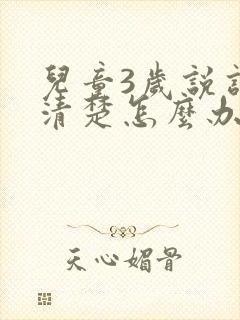 兒童3歲説
清楚怎麼办
天心媚骨